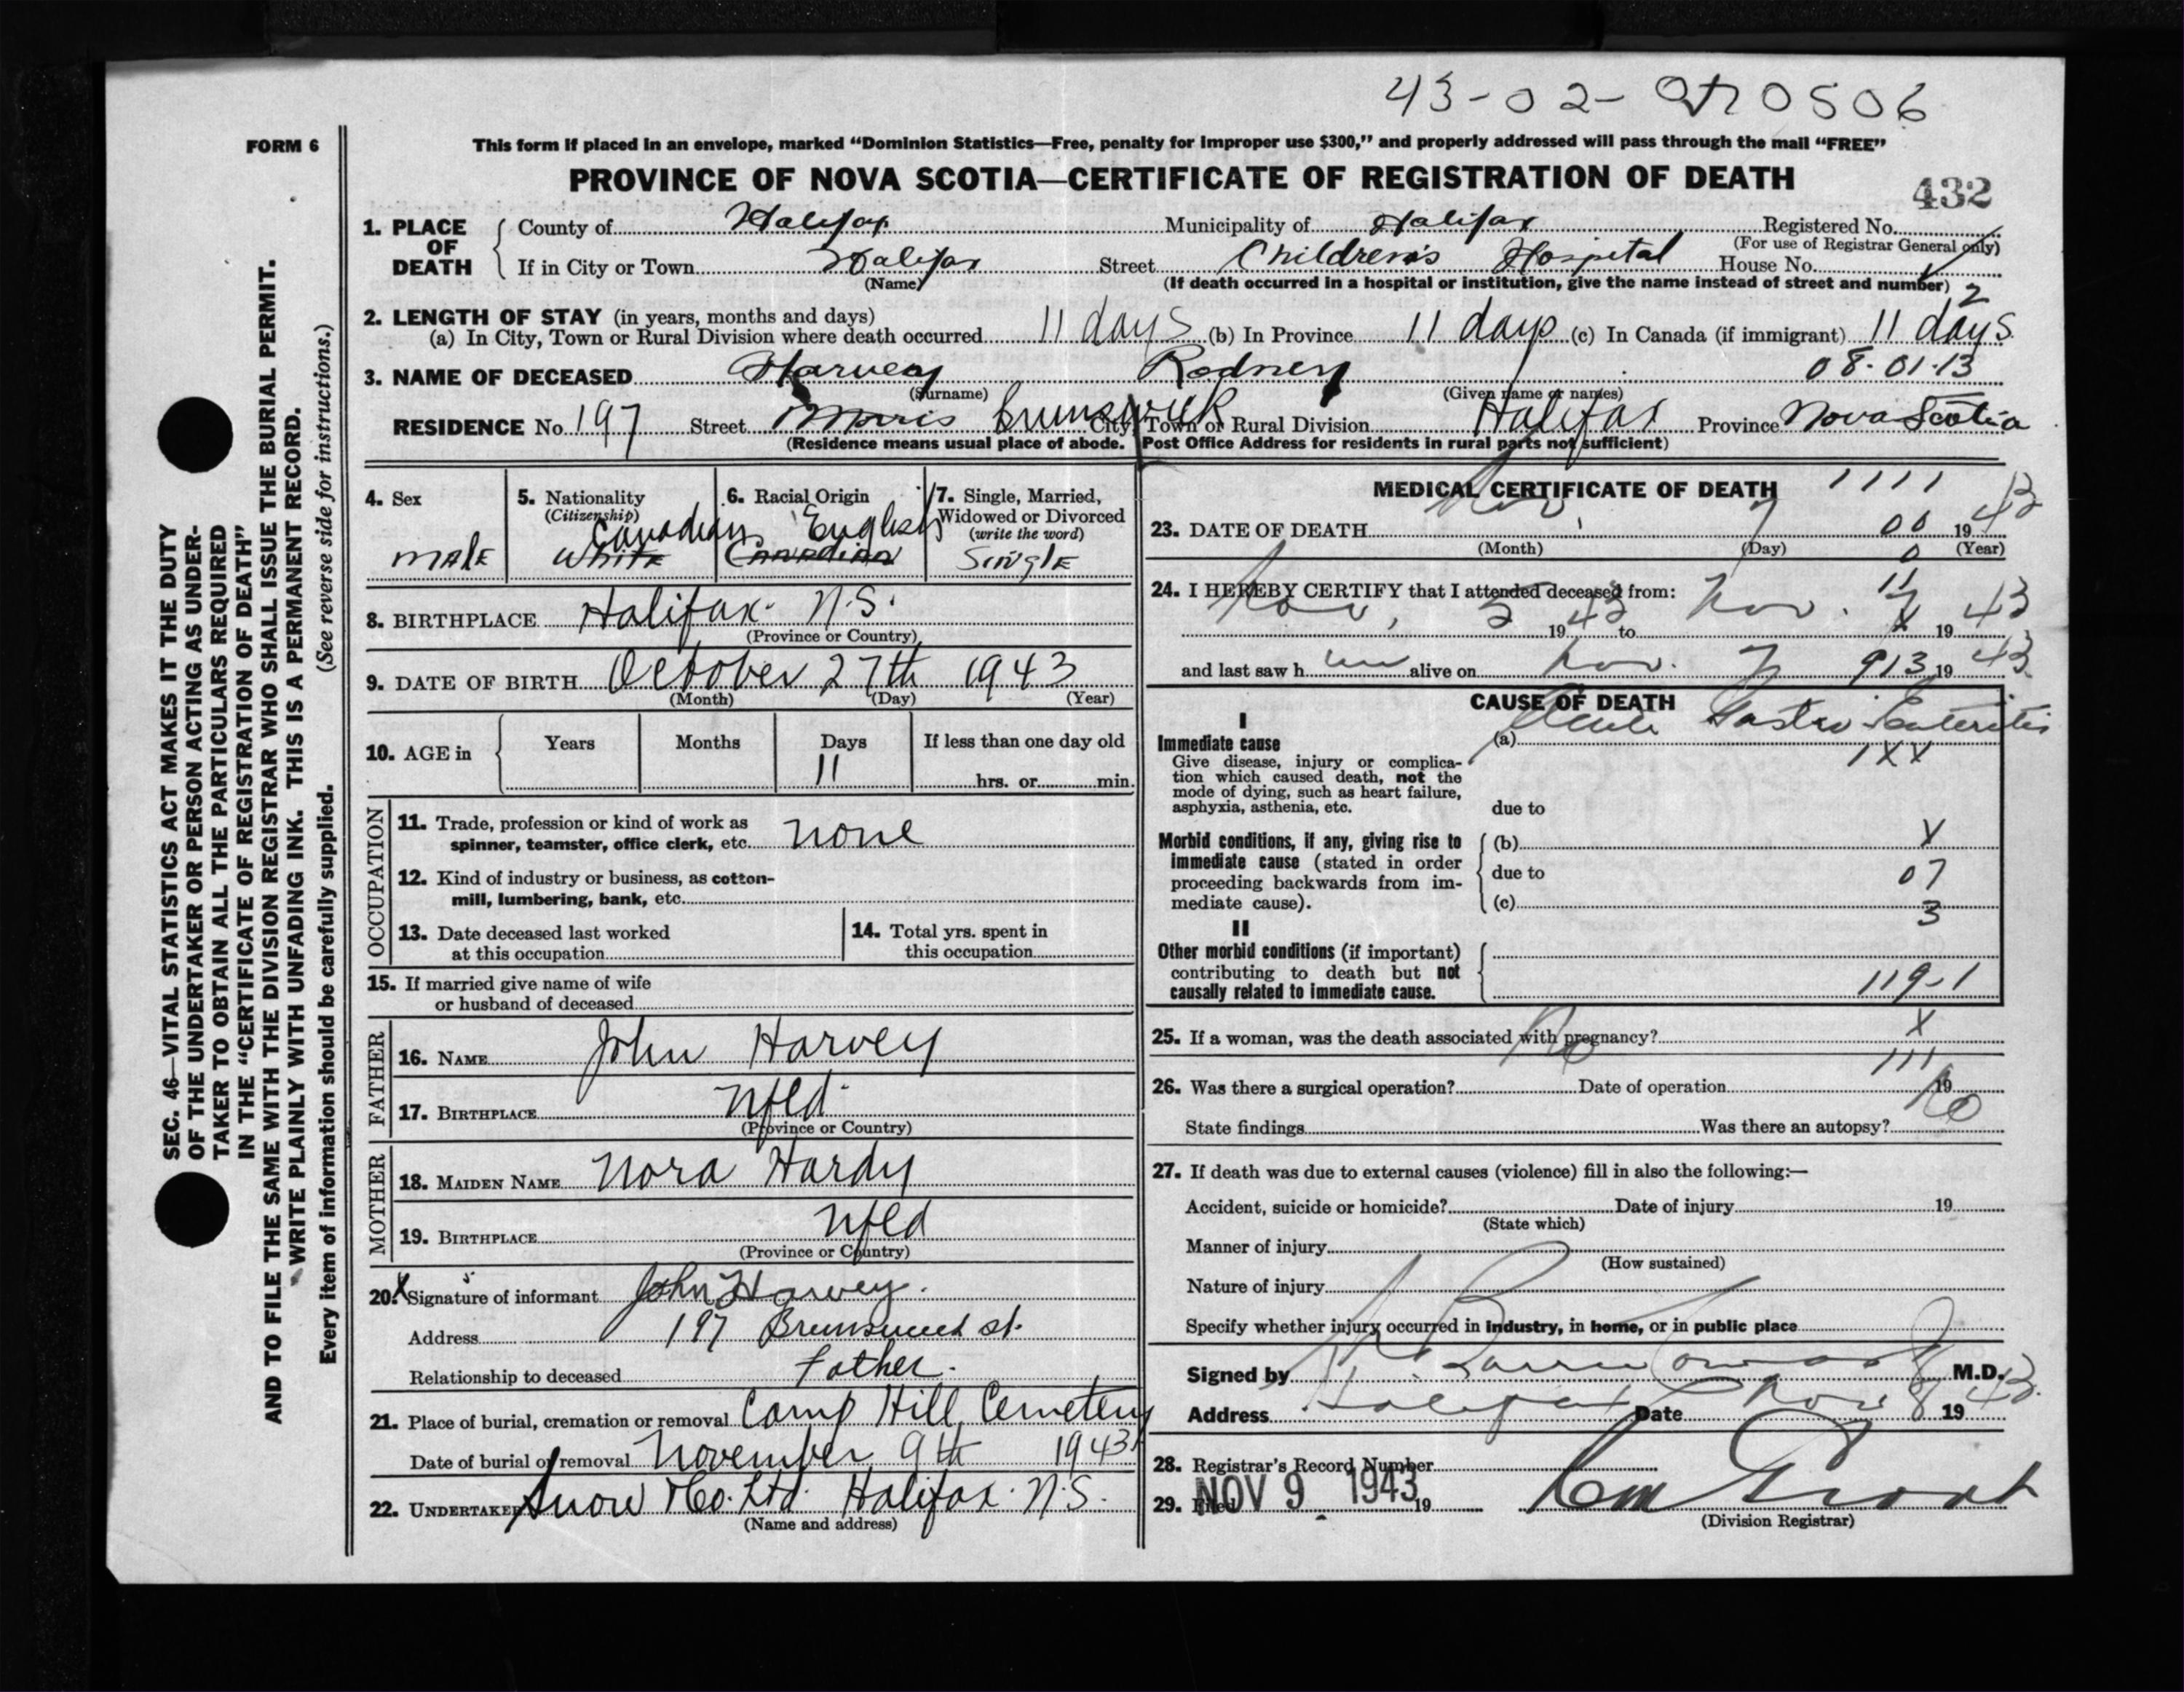 43-02-0 0506
FORM 6
This form if placed in an envelope, marked "Dominion Statistics—Free, penalty for improper use $300," and properly addressed will pass through the mail "FREE"
PROVINCE OF NOVA SCOTIA—CERTIFICATE OF REGISTRATION OF DEATH
432
1. PLACE OF DEATH County of Halifax Municipality of Halifax Registered No.
(For use of Registrar General only)
If in City or Town Halifax Street Children's Hospital House No.
(Name) (If death occurred in a hospital or institution, give the name instead of street and number) 2
2. LENGTH OF STAY (in years, months and days)
(a) In City, Town or Rural Division where death occurred 11 days (b) In Province 11 days (c) In Canada (if immigrant) 11 days
3. NAME OF DECEASED Harvey Rodney 08-01-13
(Surname) (Given name or names)
RESIDENCE No. 197 Street Morris Brunswick City, Town or Rural Division Halifax Province Nova Scotia
(Residence means usual place of abode. Post Office Address for residents in rural parts not sufficient)
4. Sex
male
5. Nationality
(Citizenship)
Canadian
White
6. Racial Origin
English
Canadian
7. Single, Married,
Widowed or Divorced
(write the word)
Single
8. BIRTHPLACE Halifax N.S.
(Province or Country)
9. DATE OF BIRTH October 27th 1943
(Month) (Day) (Year)
10. AGE in Years Months Days If less than one day old
11
hrs. or min.
OCCUPATION
11. Trade, profession or kind of work as
spinner, teamster, office clerk, etc. none
12. Kind of industry or business, as cotton-
mill, lumbering, bank, etc.
13. Date deceased last worked
at this occupation
14. Total yrs. spent in
this occupation
15. If married give name of wife
or husband of deceased
FATHER
16. NAME John Harvey
17. BIRTHPLACE Nfld.
(Province or Country)
MOTHER
18. MAIDEN NAME Nora Hardy
19. BIRTHPLACE Nfld
(Province or Country)
20. X Signature of informant John Harvey.
Address 197 Brunswick st.
Relationship to deceased Father.
21. Place of burial, cremation or removal Camp Hill Cemetery
Date of burial or removal November 9th 1943
22. UNDERTAKER Snow & Co. Ltd. Halifax. N.S.
(Name and address)
MEDICAL CERTIFICATE OF DEATH 1111
23. DATE OF DEATH Nov. 7 00 1943
(Month) (Day) 0 (Year)
24. I HEREBY CERTIFY that I attended deceased from: 11
Nov. 5 1943 to Nov. 7 X 1943
and last saw h im alive on Nov. 7 913 1943.
CAUSE OF DEATH
I
Immediate cause
Give disease, injury or complica-
tion which caused death, not the
mode of dying, such as heart failure,
asphyxia, asthenia, etc.
(a) Acute Gastro Enteritis
1XX
due to
Morbid conditions, if any, giving rise to
immediate cause (stated in order
proceeding backwards from im-
mediate cause).
(b) X
due to 07
(c) 3
II
Other morbid conditions (if important)
contributing to death but not
causally related to immediate cause.
119-1
25. If a woman, was the death associated with pregnancy? X
111
26. Was there a surgical operation? No Date of operation 19
State findings Was there an autopsy? No
27. If death was due to external causes (violence) fill in also the following:—
Accident, suicide or homicide? Date of injury 19
(State which)
Manner of injury
(How sustained)
Nature of injury
Specify whether injury occurred in industry, in home, or in public place
Signed by M.D.
Address Halifax Date Nov. 8 1943.
28. Registrar's Record Number
29. Filed NOV 9 1943 19
(Division Registrar)
SEC. 46—VITAL STATISTICS ACT MAKES IT THE DUTY
OF THE UNDERTAKER OR PERSON ACTING AS UNDER-
TAKER TO OBTAIN ALL THE PARTICULARS REQUIRED
IN THE "CERTIFICATE OF REGISTRATION OF DEATH"
AND TO FILE THE SAME WITH THE DIVISION REGISTRAR WHO SHALL ISSUE THE BURIAL PERMIT.
WRITE PLAINLY WITH UNFADING INK. THIS IS A PERMANENT RECORD.
Every item of information should be carefully supplied. (See reverse side for instructions.)